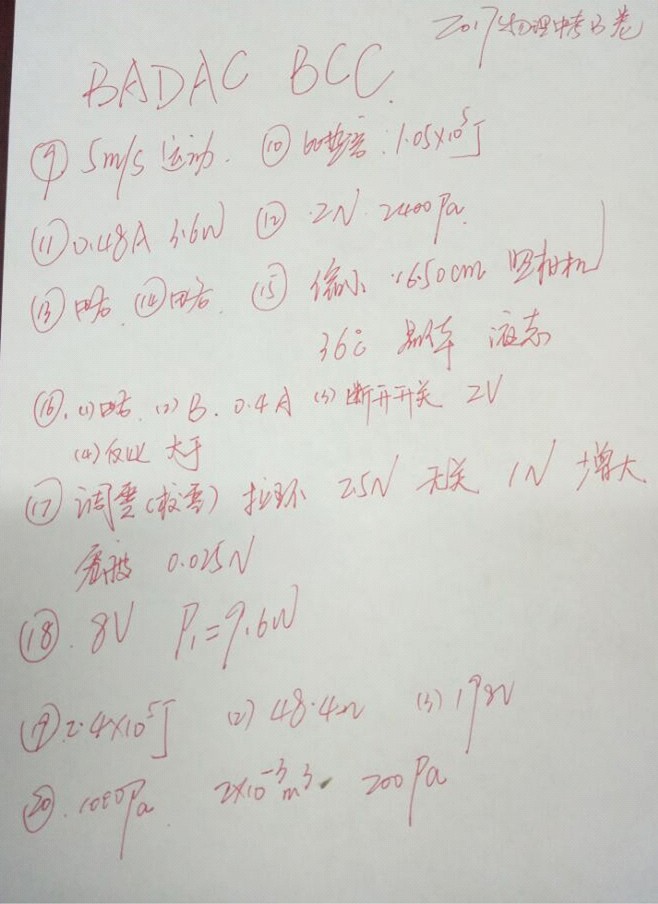 2017物理中考B卷
BADAC BCC.
⑨ 5m/s 运动. ⑩ 比热容: 1.05×10⁵J
⑪ 0.48A 3.6W ⑫ 2N 2400Pa.
⑬ 略. ⑭ 略. ⑮ 缩小 50cm 照相机
36℃ 晶体 液态
⑯. (1) 略. (2) B. 0.4A (3) 断开开关 2V
(4) 反比 大于
⑰ 调零(校零) 拉环 2.5N 无关 1N 增大
0.025N
⑱. 8V P₁=9.6W
⑲ 2.4×10⁵J (2) 48.4Ω (3) 198V
⑳. 1000Pa. 2×10⁻³m³. 200Pa